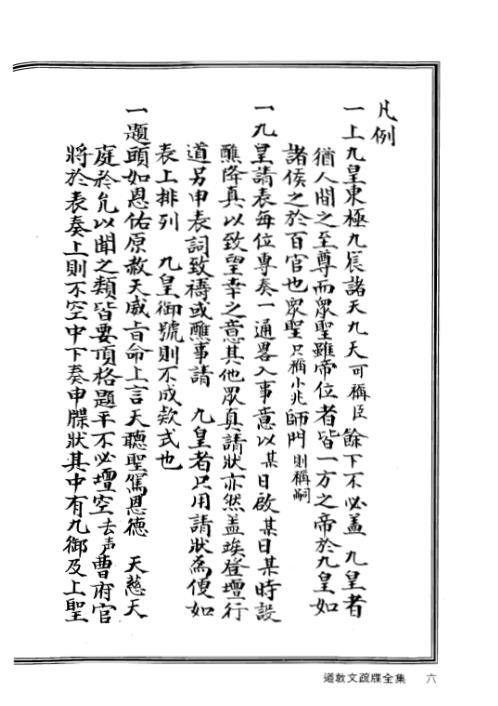 凡例
一上九皇東極九宸諸天九天可稱臣餘下不必盖 九皇者
猶人間之至尊而衆聖雖帝位者皆一方之帝於九皇如
諸侯之於百官也衆聖只稱小兆師門則稱嗣
一九皇請表每位專奏一通畧入事意以某日啟某日某時設
醮降真以致望幸之意其他衆真請狀亦然盖埃登壇行
道另申表詞致禱或醮事請 九皇者只用請狀為便如
表上排列 九皇御號則不成欵式也
一題頭如恩佑原赦天威旨命上言天聽聖駕恩德 天慈天
庭於允以聞之類皆要頂格題平不必壇空去声曹府官
將於表奏上則不空中下奏申牒狀其中有九御及上聖
道教文疏牒全集 六